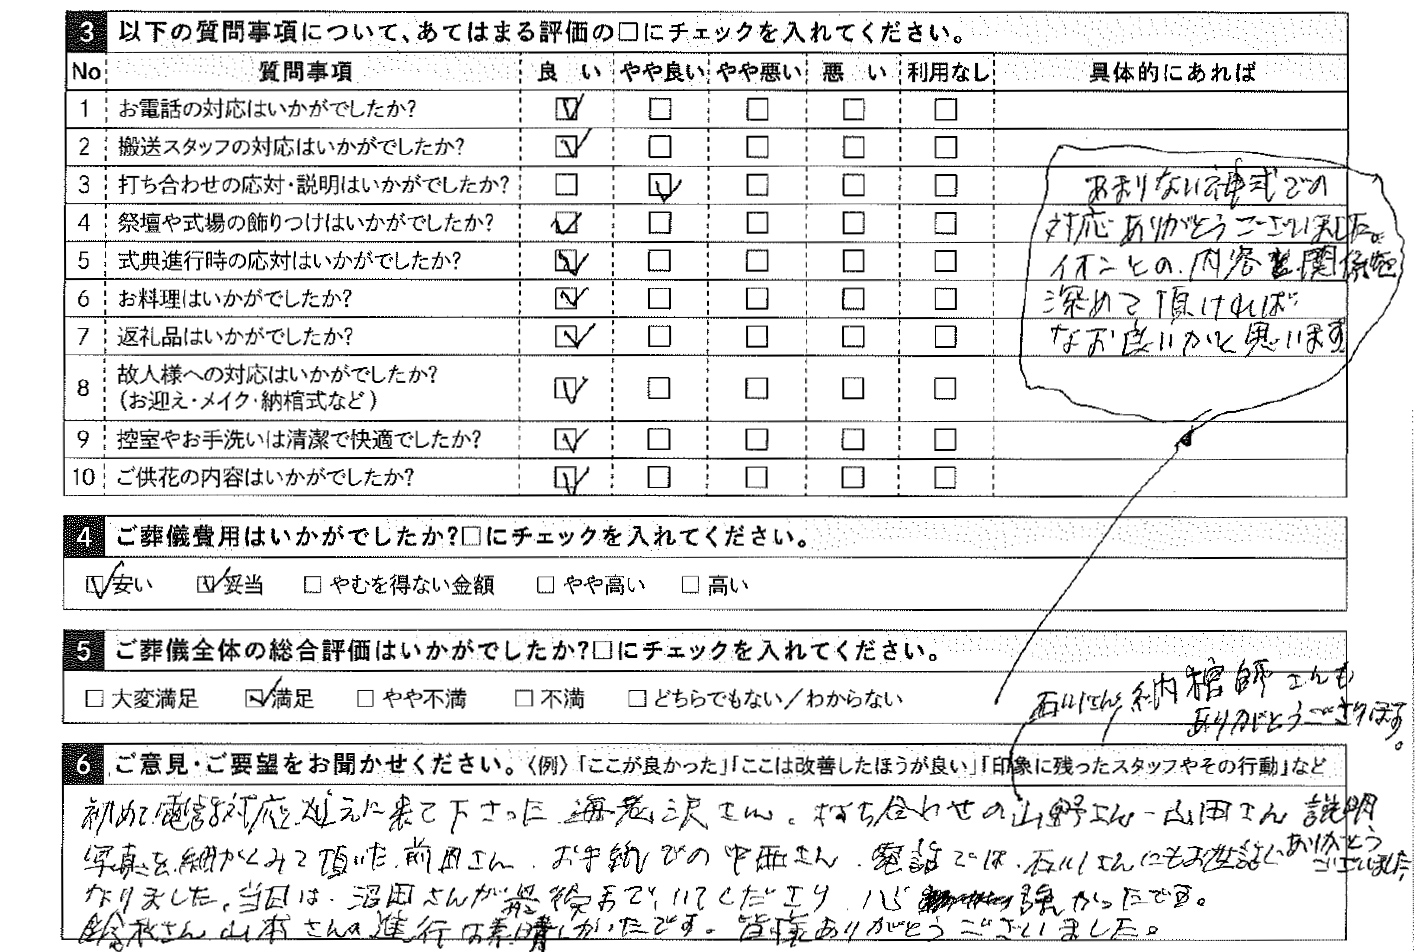 3 以下の質問事項について、あてはまる評価の□にチェックを入れてください。
No 質問事項 良 い やや良い やや悪い 悪 い 利用なし 具体的にあれば
1 お電話の対応はいかがでしたか?
2 搬送スタッフの対応はいかがでしたか?
3 打ち合わせの応対・説明はいかがでしたか?
4 祭壇や式場の飾りつけはいかがでしたか?
5 式典進行時の応対はいかがでしたか?
6 お料理はいかがでしたか?
7 返礼品はいかがでしたか?
8 故人様への対応はいかがでしたか?
(お迎え・メイク・納棺式など)
9 控室やお手洗いは清潔で快適でしたか?
10 ご供花の内容はいかがでしたか?
あまりない神式での
対応ありがとうございました。
イオンとの、内容 関係
深めて頂ければ
なお良いかと思います
4 ご葬儀費用はいかがでしたか?□にチェックを入れてください。
安い 妥当 □やむを得ない金額 □やや高い □高い
5 ご葬儀全体の総合評価はいかがでしたか?□にチェックを入れてください。
□大変満足 満足 □やや不満 □不満 □どちらでもない/わからない
石川さん 納棺師さんも
ありがとうございます。
6 ご意見・ご要望をお聞かせください。〈例〉「ここが良かった」「ここは改善したほうが良い」「印象に残ったスタッフやその行動」など
初めて電話対応と迎えに来て下さった 海老沢さん、打ち合わせの山野さん-山田さん 説明
写真を細かくみて頂いた前田さん、お手紙での 中西さん、電話では、石川さんにもお世話に ありがとう
ございました
なりました。当日は、沼田さんが最後までいてくださり 心強かったです。
鈴木さん 山本さんの進行は素晴しかったです。皆様ありがとうございました。